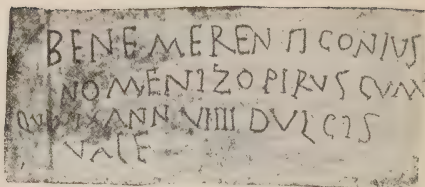 BENEMERENTI CONIVS
NOMENIZOPIRVS CVM
ANN VIIII DVLCIS
VALE